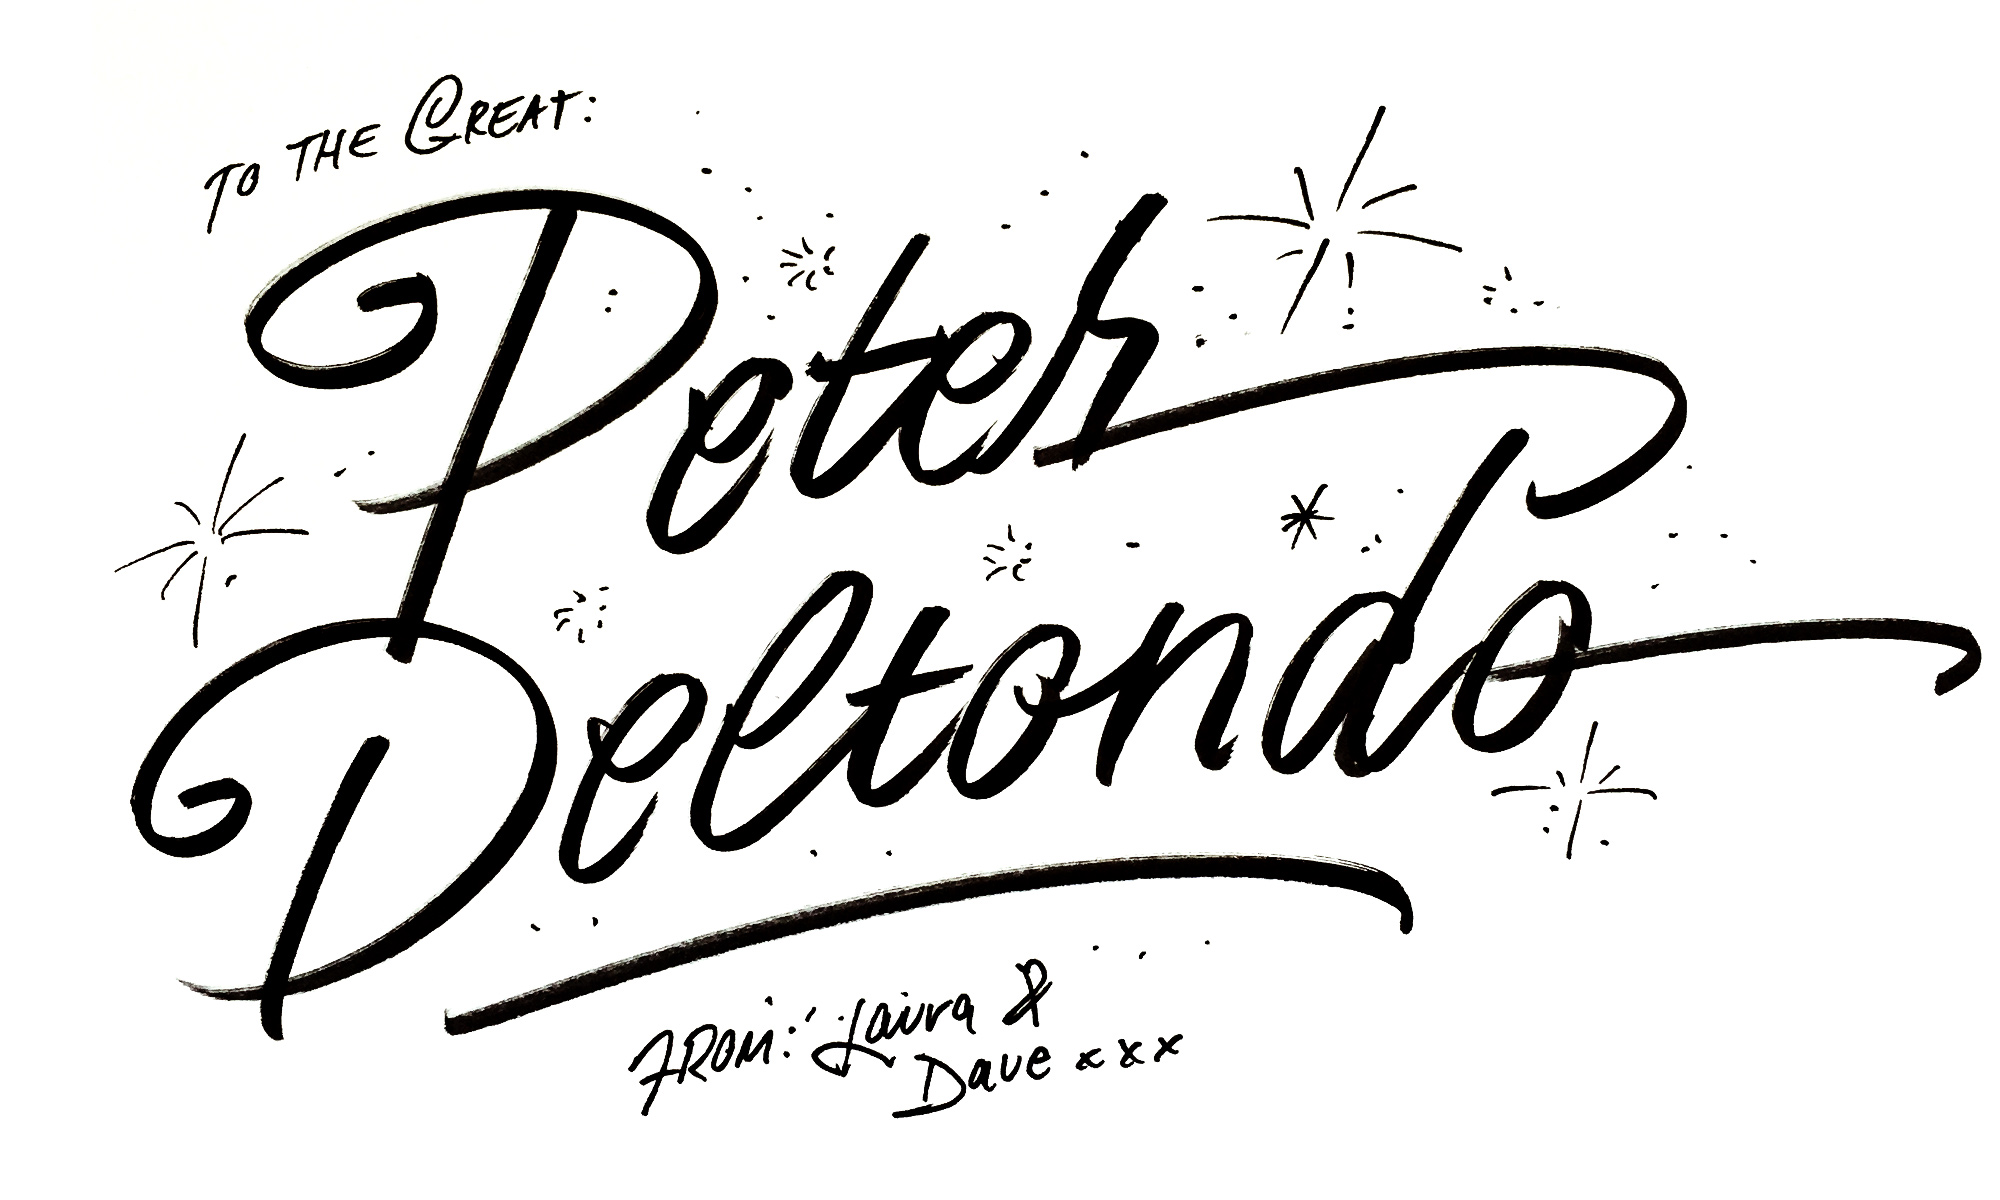 TO THE GREAT:
Peter
Deltondo
FROM: Laura &
Dave xxx